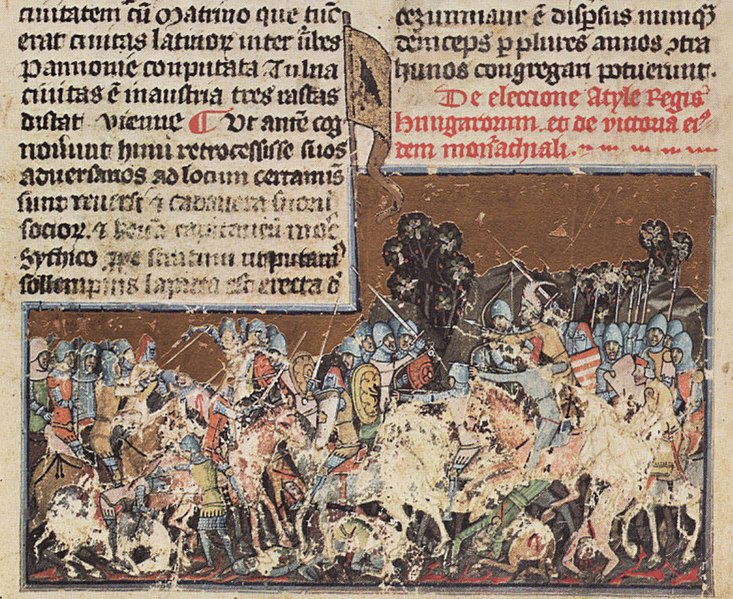 ciuitatem cū Matrino que tūc
erat ciuitas latinior inter ūbes
Pannonie conputata Tulna
ciuitas ē in austria tres rastas
distat vienne ¶ Ut antē cog
nouūnt huni retrocessisse suos
aduersarios ad locum certamis
sunt reuersi ⁊ cadauera suorū
socior ⁊ capitaneū more
Sythico
sollempnis lapidea est erecta
ē dispsus numqȝ
deinceps p plures annos ɔtra
hunos congregari potuerunt.
De eleccione Atyle Regis
hungarorum. et de victoria eiꝰ
dem